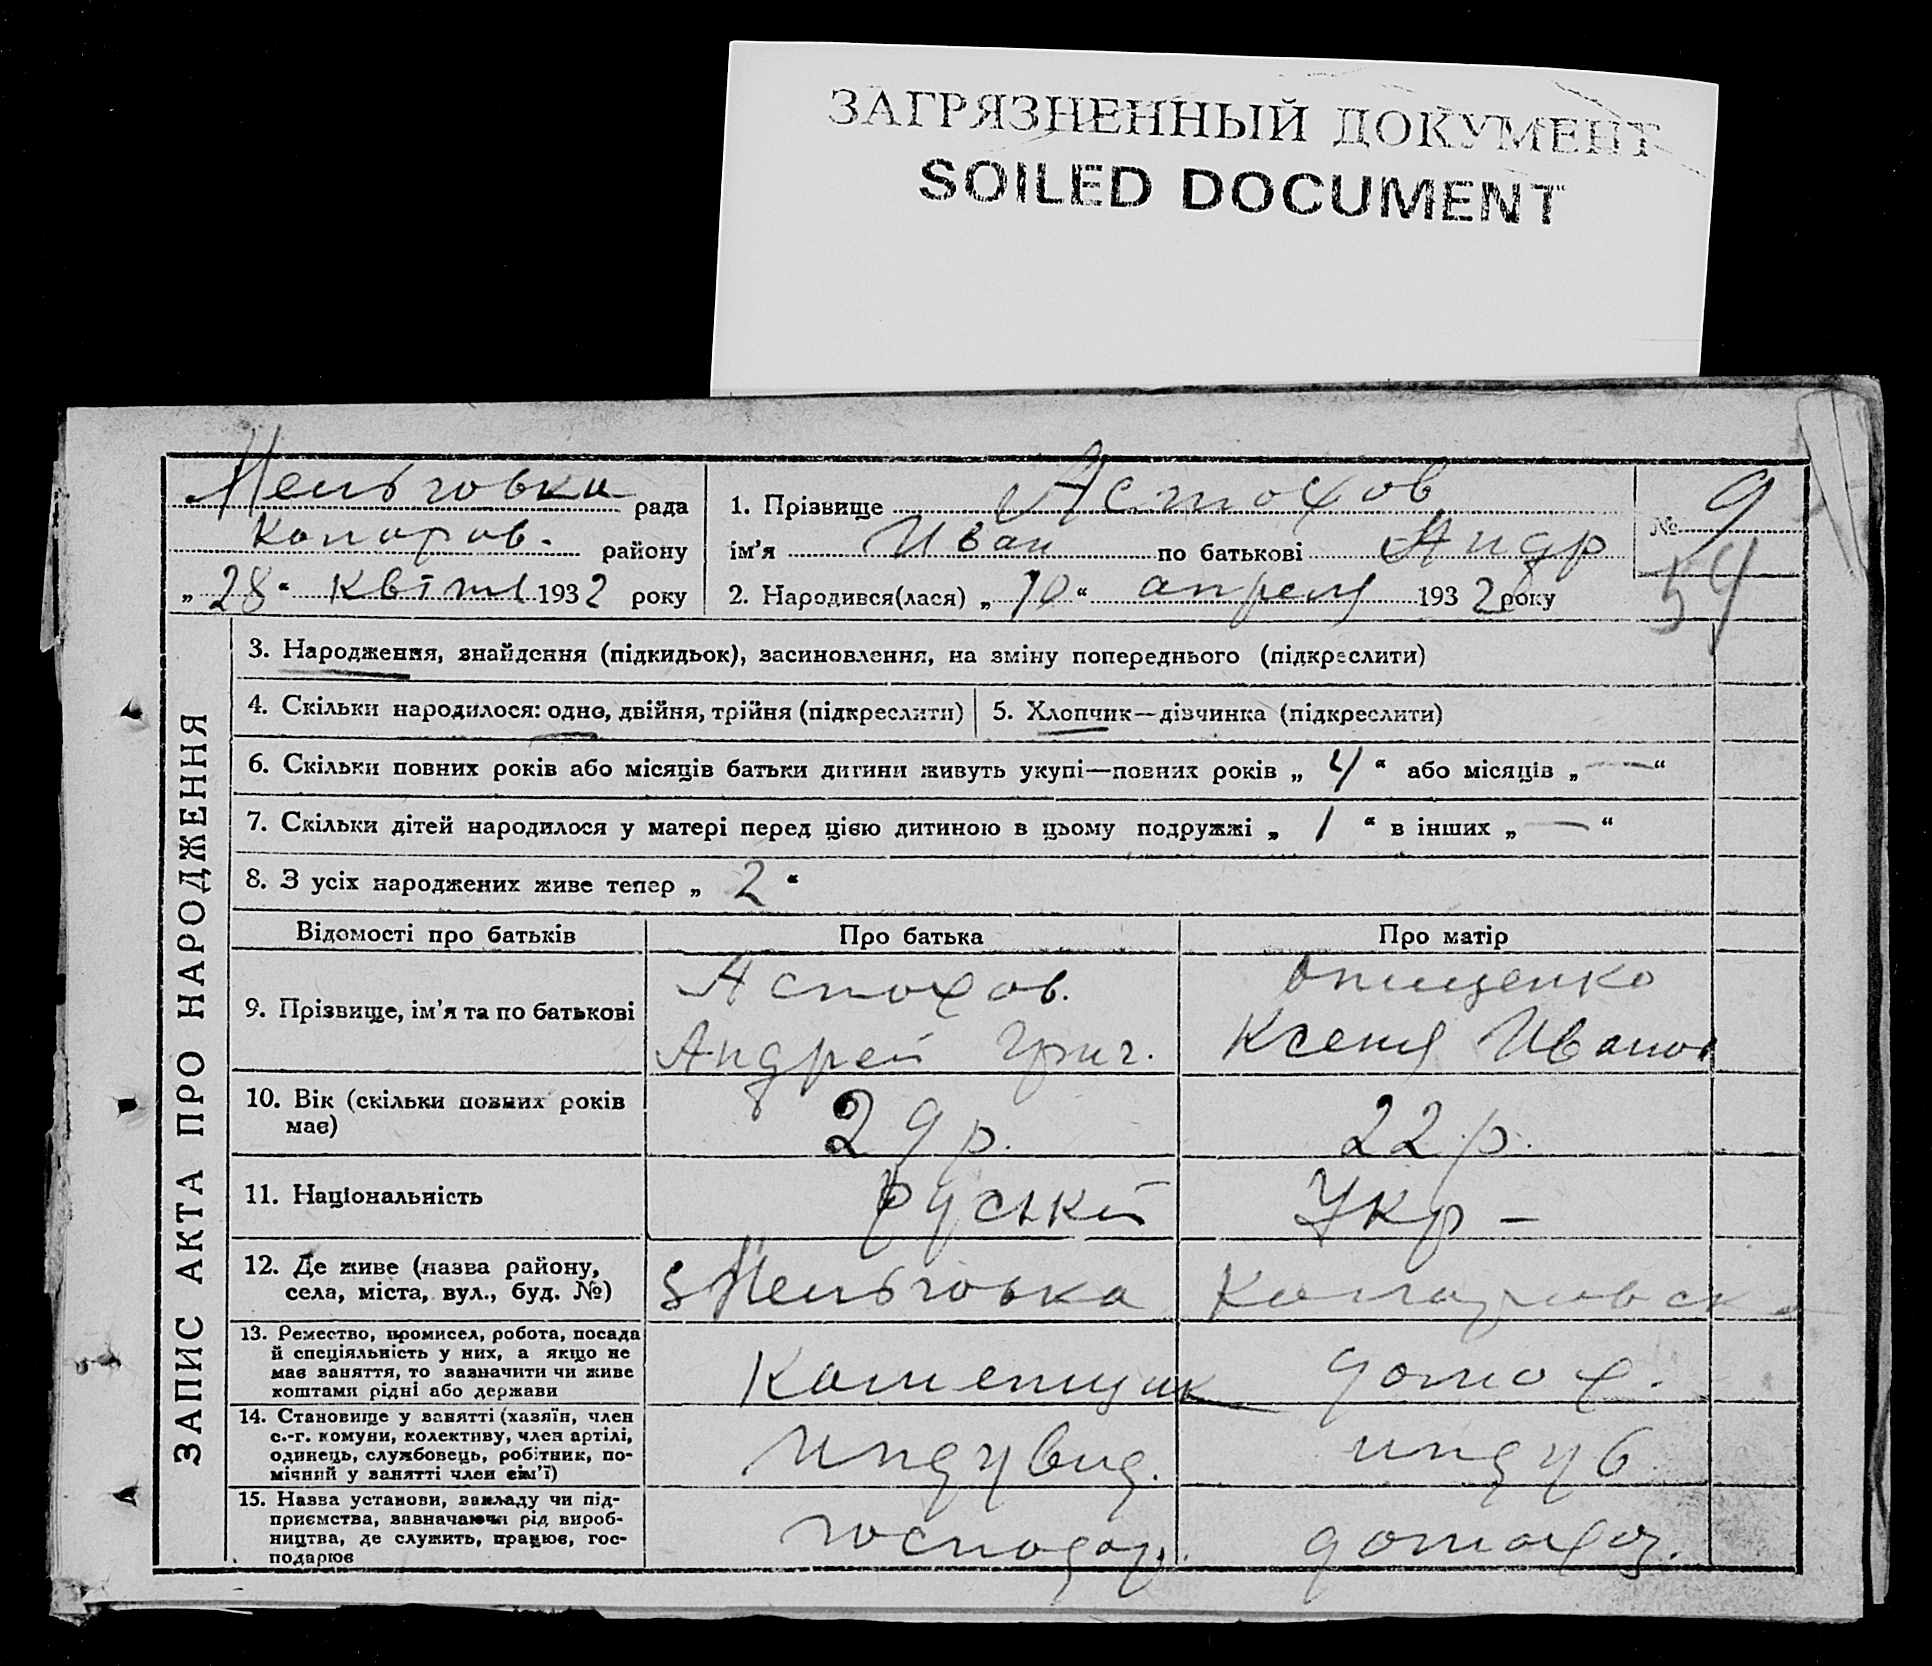 ЗАГРЯЗНЕННЫЙ ДОКУМЕНТ
SOILED DOCUMENT
рада
району
„ 28 “ 1932 року
1. Прізвище Астахов
ім'я Иван по батькові Андр
2. Народився(лася) „ 10 “ апреля 1932 року
№ 9
54
ЗАПИС АКТА ПРО НАРОДЖЕННЯ
3. Народження, знайдення (підкидьок), засиновлення, на зміну попереднього (підкреслити)
4. Скільки народилося: одно, двійня, трійня (підкреслити)
5. Хлопчик—дівчинка (підкреслити)
6. Скільки повних років або місяців батьки дитини живуть укупі—повних років „ 4 “ або місяців „ — “
7. Скільки дітей народилося у матері перед цією дитиною в цьому подружжі „ 1 “ в інших „ — “
8. З усіх народжених живе тепер „ 2 “
Відомості про батьків
Про батька
Про матір
9. Прізвище, ім'я та по батькові
Астахов.
Андрей Григ.
Онищенко
Ксения Иванов
10. Вік (скільки повних років
має)
29 р.
22 р.
11. Національність
руський
Укр –
12. Де живе (назва району,
села, міста, вул., буд. №)
13. Ремество, промисел, робота, посада
й спеціяльність у них, а якщо не
має заняття, то зазначити чи живе
коштами рідні або держави
Каменщик
домох.
14. Становище у занятті (хазяїн, член
с.-г. комуни, колективу, член артілі,
одинець, службовець, робітник, по-
мічний у занятті член сім'ї)
индувид.
индув
15. Назва установи, закладу чи під-
приємства, зазначаючи рід вироб-
ництва, де служить, працює, гос-
подарює
господар.
домохоз.